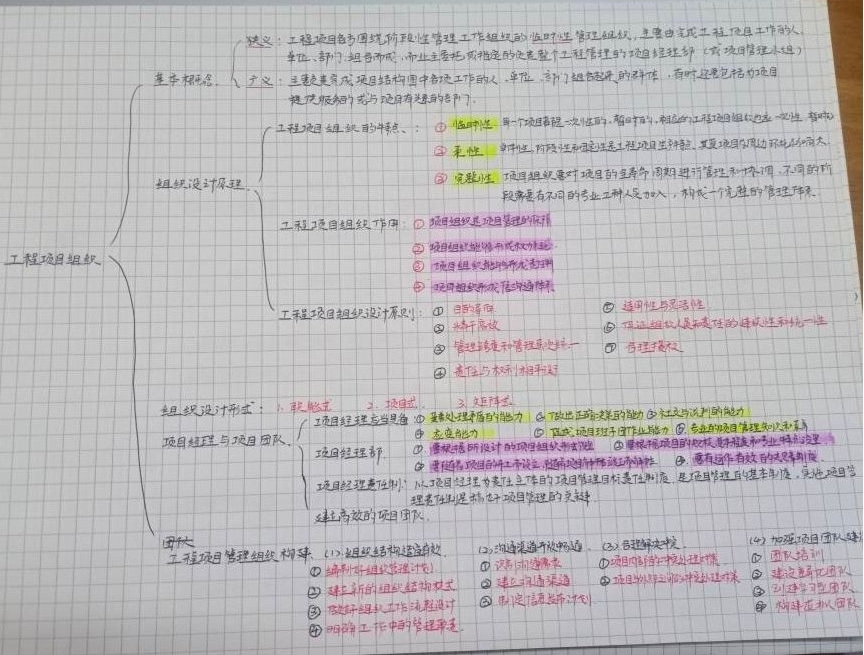 狭义：工程项目各参与方围绕阶段性管理工作组织的临时性管理组织，主要由完成工程项目工作的人、
单位、部门组合而成，而业主委托或指定的负责整个工程管理的项目经理部（或项目管理小组）
基本概念
广义：主要负责完成项目结构图中各项工作的人、单位、部门组合起来的群体，有时还要包括为项目
提供服务的或与项目有关系的部门．
工程项目组织的特点：① 临时性 每一个项目都是一次性的，暂时的，相应的工程项目组织也是一次性
② 柔性
组织设计原理
③ 完整性 项目组织要对项目的全寿命周期进行管理和协调，不同的阶
段需要有不同的专业工种人员加入，构成一个完整的管理体系．
工程项目组织作用：① 项目组织是项目管理的保障
② 项目组织能够形成权力系统
③ 项目组织能够形成责任制
④ 项目组织形成信息沟通体系
工程项目组织
工程项目组织设计原则：① 目的导向 ⑤ 适用性与灵活性
② 精干高效 ⑥ 保证组织人员和责任的连续性和统一性
③ 管理跨度和管理层次统一 ⑦ 合理授权
④ 责任与权利相平衡
组织设计形式：1. 职能式 2. 项目式 3. 矩阵式
项目经理与项目团队
项目经理应当具备：① 处理矛盾的能力 ② 做出正确决策的能力 ③ 社交与谈判的能力
④ 应变能力 ⑤ 项目班子团队能力 ⑥ 专业的项目管理知识
项目经理部 ① 要根据所设计的项目组织形式 ② 要根据项目的规模、复杂程度和专业特点设置
项目经理责任制：以项目经理为责任主体的项目管理目标责任制度 是项目管理的基本制度，实施项目管
理责任制是
建立高效的项目团队．
团队
工程项目管理组织构建 (1). 组织结构适宜有效 (2). 沟通渠道开放畅通． (3) 合理解决冲突 (4) 加强项目团队建
① 编制好组织管理计划 ① 识别沟通需求 ① 项目内部的冲突处理对策 ① 团队培训
② 建立新的组织结构模式 ② 建立沟通渠道 ② 冲突处理对策 ② 建设多元化团队
③ 做好组织工作流程设计 ③ 制定信息发布计划 ③ 创建学习型团队
④ 明确工作中的管理 ④ 构建虚拟团队